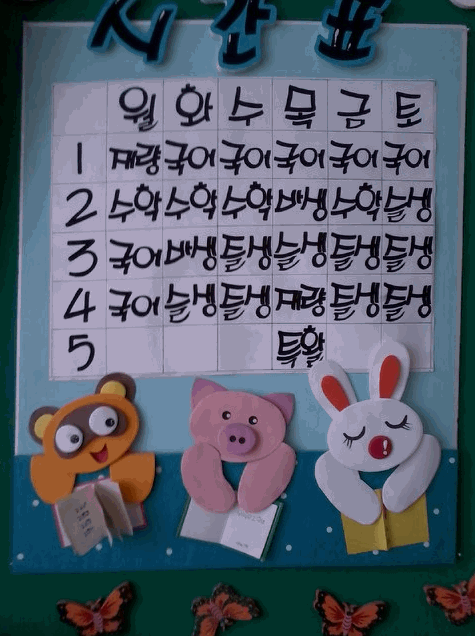 시간표
월 화 수 목 금 토
1 재량 국어 국어 국어 국어 국어
2 수학 수학 수학 바생 수학 슬생
3 국어 바생 즐생 슬생 즐생 즐생
4 국어 슬생 즐생 재량 즐생 즐생
5 특활